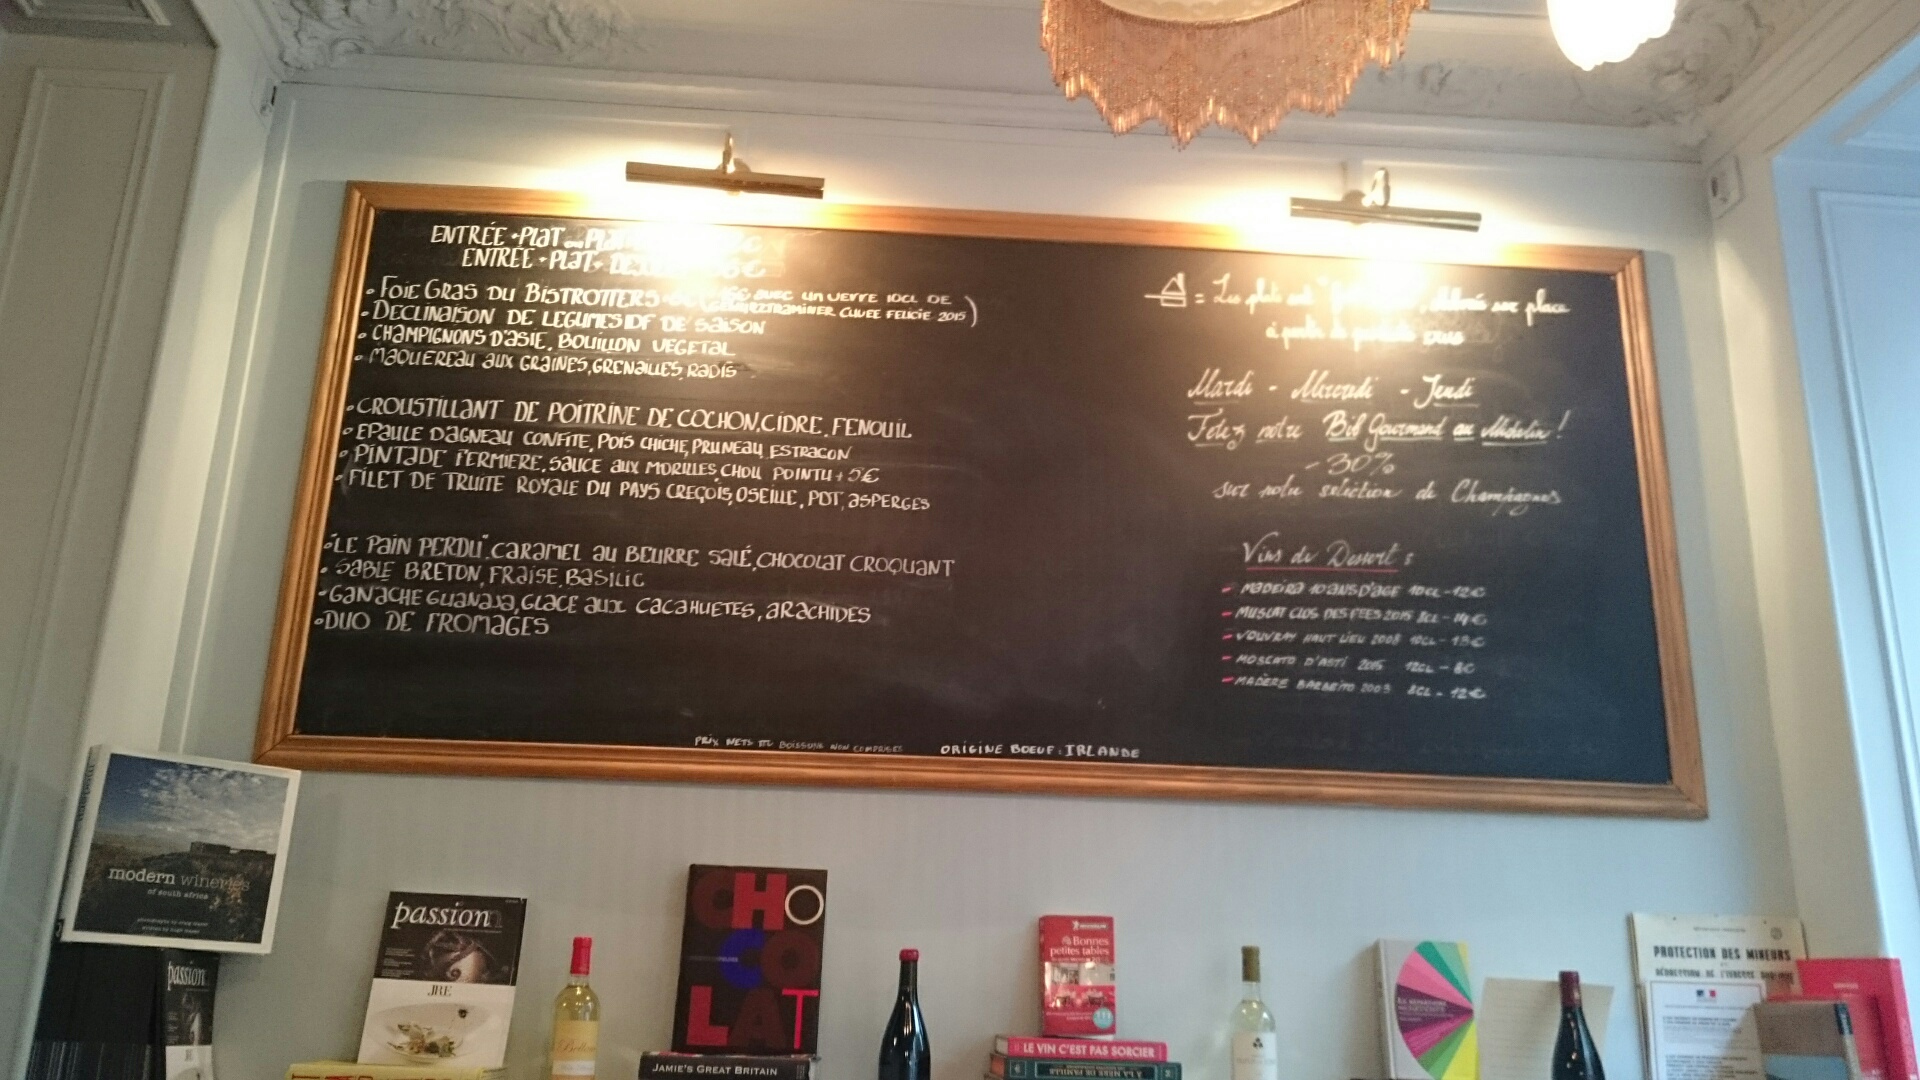 ENTRÉE + PLAT ou PLAT
ENTRÉE + PLAT +
• FOIE GRAS DU BISTROTTERS AVEC UN VERRE 10CL DE
GEWURZTRAMINER CUVEE FELICIE 2015)
• DECLINAISON DE LEGUMES IDF DE SAISON
• CHAMPIGNONS D'ASIE, BOUILLON VEGETAL
• MAQUEREAU AUX GRAINES, GRENAILLES, RADIS
• CROUSTILLANT DE POITRINE DE COCHON, CIDRE, FENOUIL
• EPAULE D'AGNEAU CONFITE, POIS CHICHE, PRUNEAU ESTRAGON
• PINTADE FERMIERE, SAUCE AUX MORILLES, CHOU POINTU + 5€
• FILET DE TRUITE ROYALE DU PAYS CREÇOIS, OSEILLE, PDT, ASPERGES
• "LE PAIN PERDU", CARAMEL AU BEURRE SALÉ, CHOCOLAT CROQUANT
• SABLE BRETON, FRAISE, BASILIC
• GANACHE GUANAJA, GLACE AUX CACAHUETES, ARACHIDES
• DUO DE FROMAGES
= Les plats sont sur place
à partir de produits crus
Mardi - Mercredi - Jeudi
Fetez notre Bib Gourmand au Michelin !
- 30%
sur notre selection de Champagnes
Vins de Dessert :
- MADEIRA 10 ANS D'AGE 10CL - 12€
- MUSCAT CLOS DES FEES 2015 8CL - 14€
- VOUVRAY HAUT LIEU 2008 10CL - 13€
- MOSCATO D'ASTI 2015 12CL - 8€
- MADÈRE BARBEITO 2003 8CL - 12€
PRIX NETS BOISSONS NON COMPRISES
ORIGINE BOEUF : IRLANDE
modern wineries
of south africa
passion
JRE
passion
CHOCOLAT
JAMIE'S GREAT BRITAIN
Bonnes
petites tables
LE VIN C'EST PAS SORCIER
À LA MÈRE DE FAMILLE
PROTECTION DES MINEURS